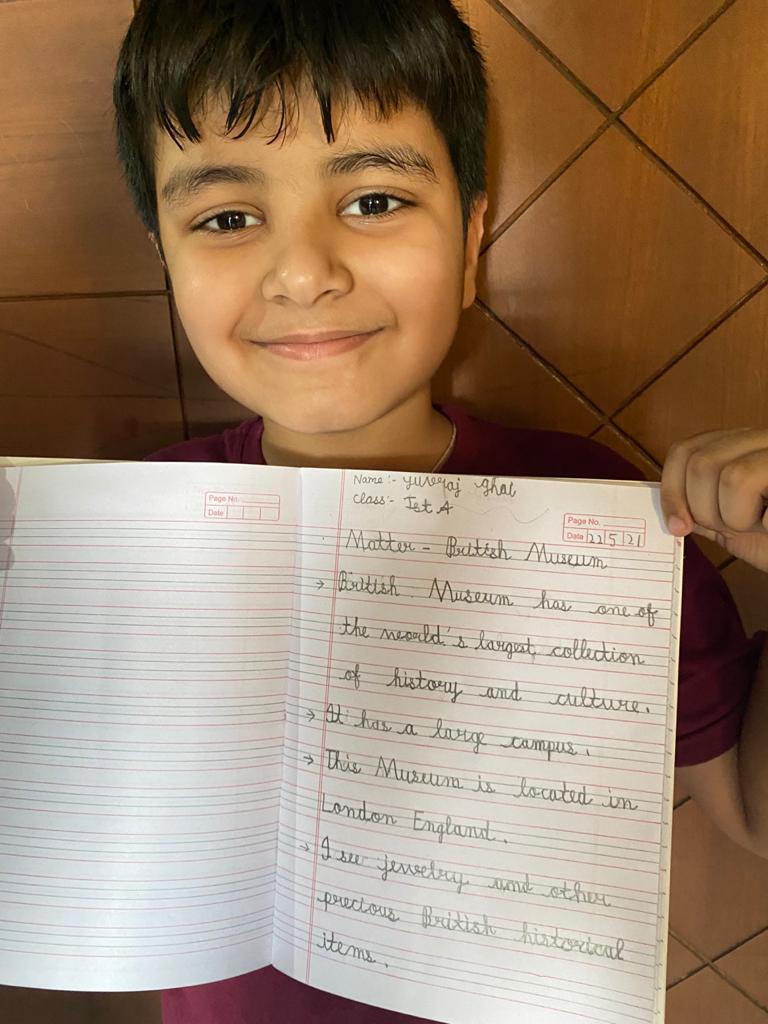 Page No.
Date
Name :- Yuveraj Ghai
Class :- Ist A
Page No.
Date 22 5 21
Matter - British Museum
→ British Museum has one of
the world's largest collection
of history and culture.
→ It has a large campus.
→ This Museum is located in
London England.
→ I see jewelry and other
precious British historical
items.